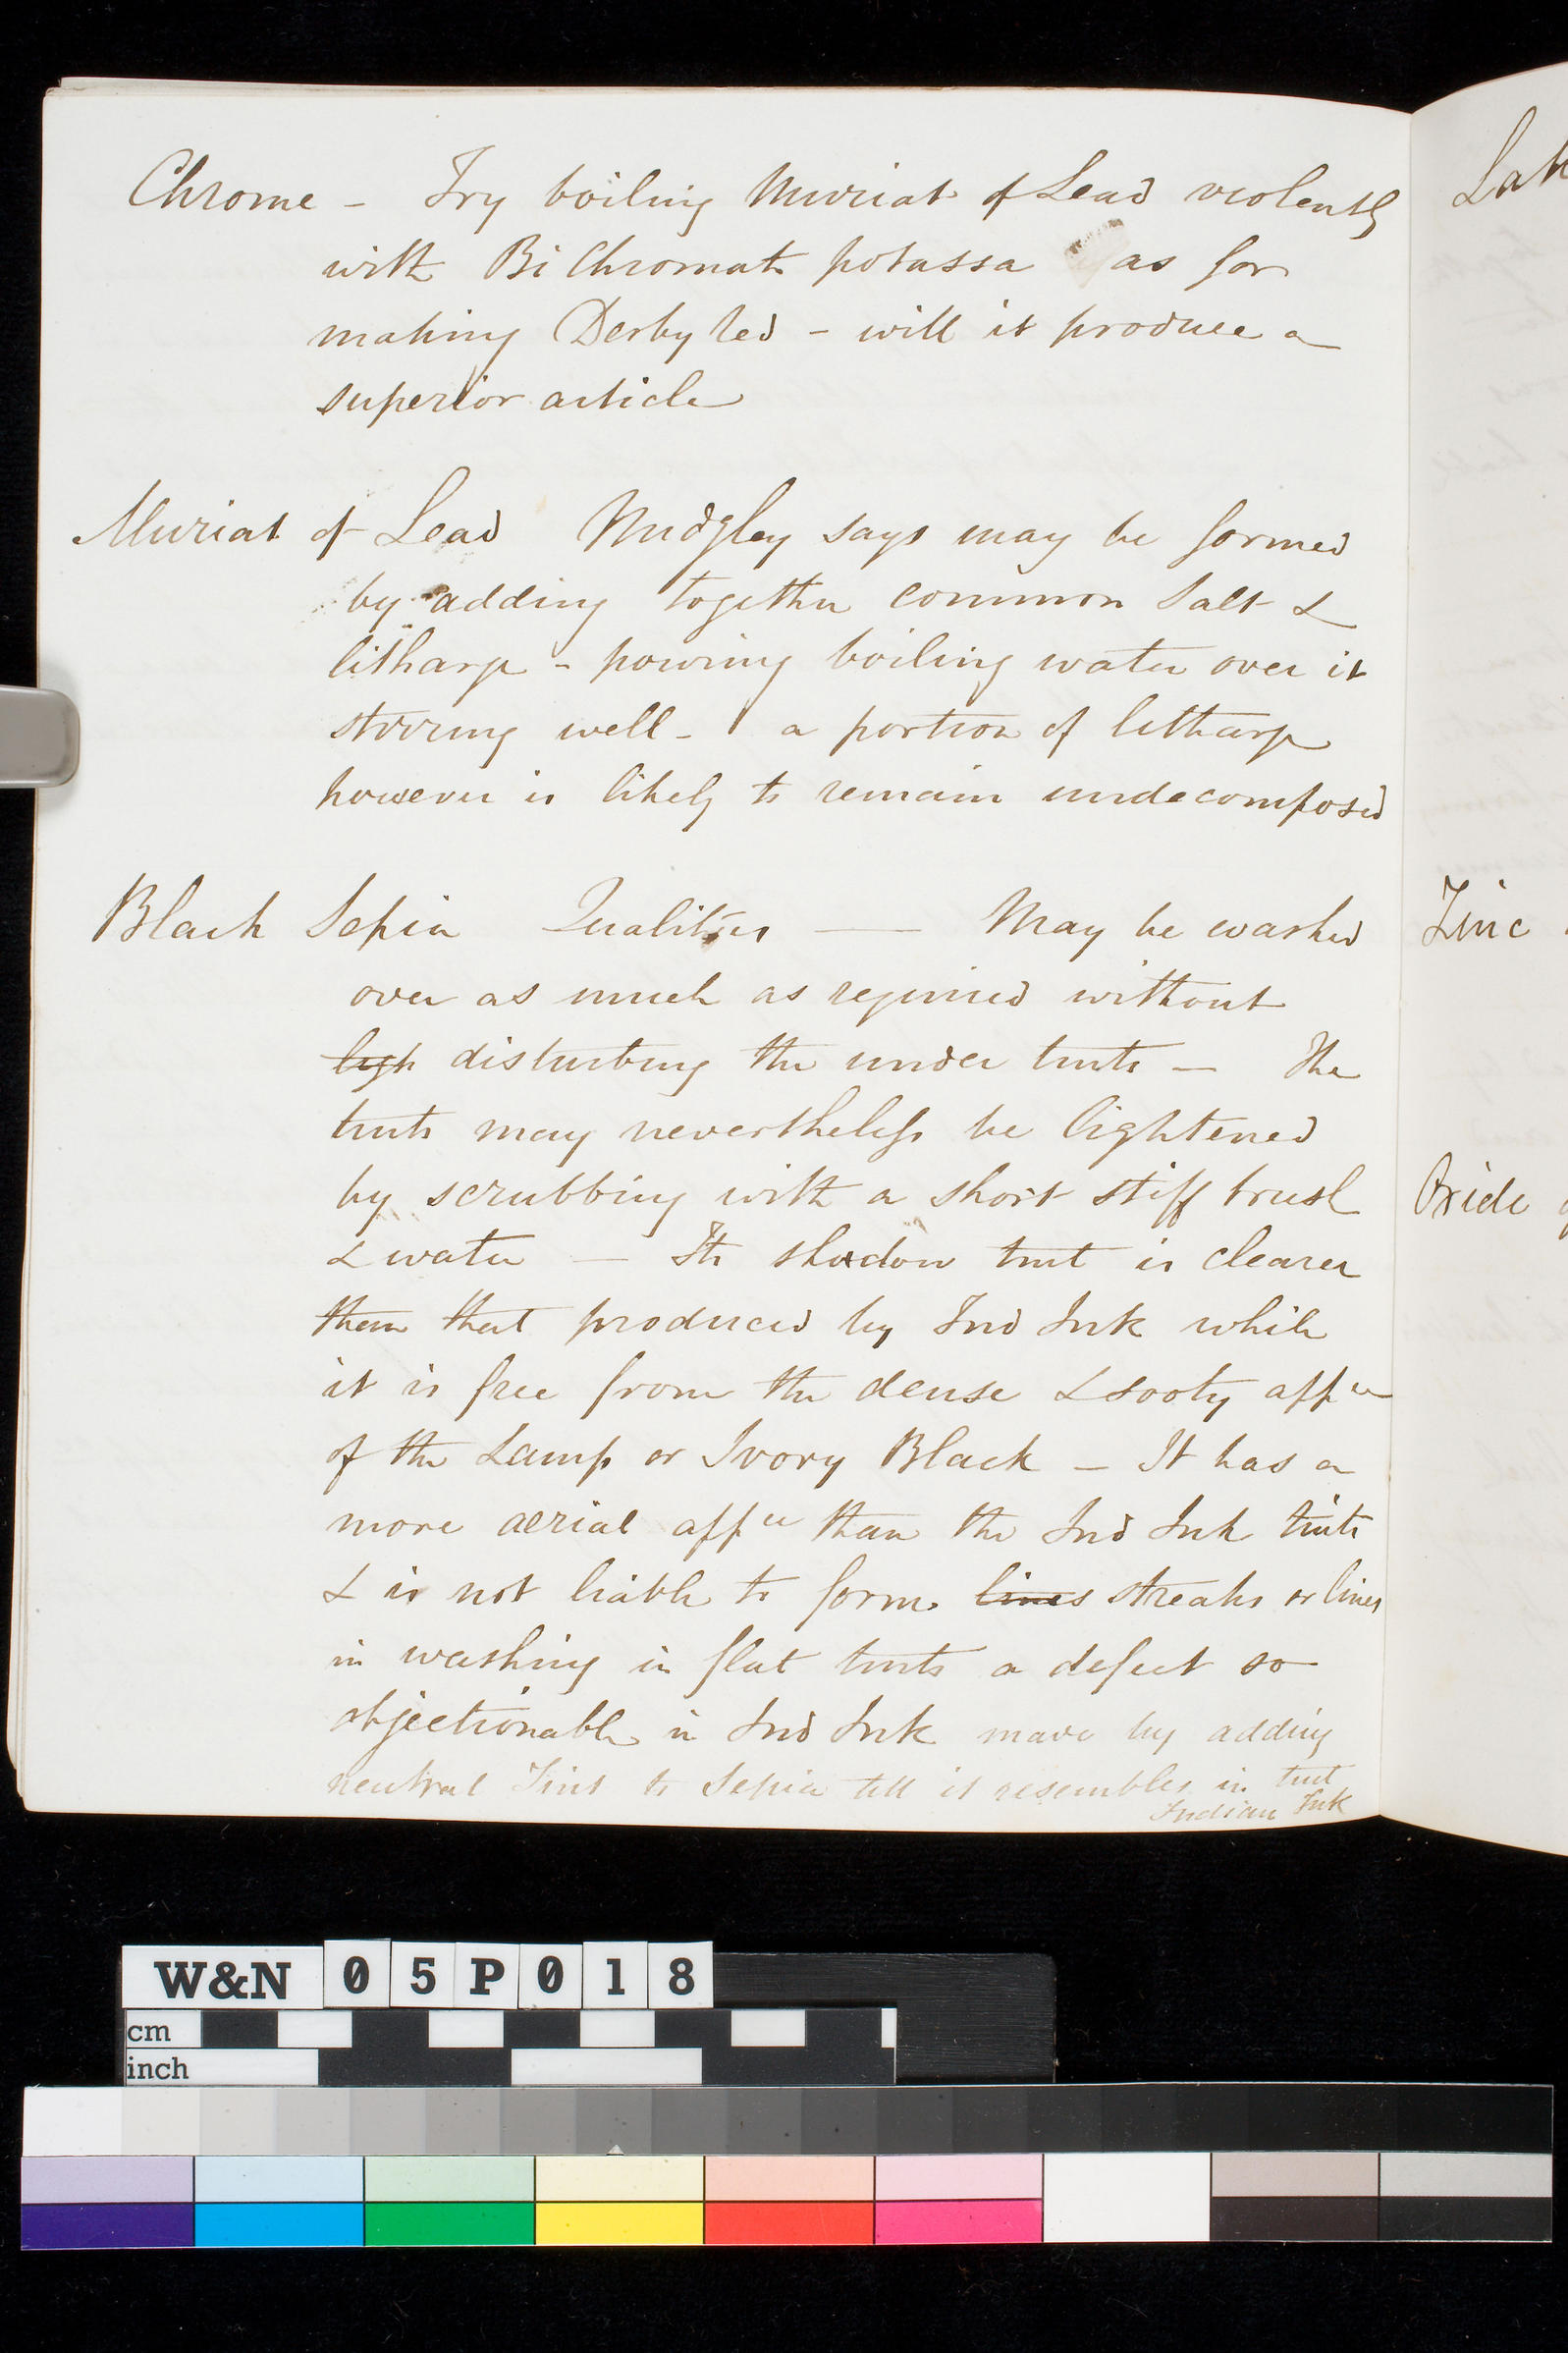 Chrome - Try boiling Muriat of Lead violently
with Bi Chromat potassa as for
making Derby red - will it produce a
superior article
Muriat of Lead Midgley says may be formed
by adding together common Salt &
litharge - pouring boiling water over it
stirring well - a portion of litharge
however is likely to remain undecomposed
Black Sepia Qualities — May be washed
over as much as required without
ligh disturbing the under tints — The
tints may nevertheless be lightened
by scrubbing with a short stiff brush
& water — Its shadow tint is clearer
than that produced by Ind Ink while
it is free from the dense & sooty appce
of the Lamp or Ivory Black — It has a
more aerial appce than the Ind Ink tints
& is not liable to form lines streaks or lines
in washing in flat tints a defect so
objectionable in Ind Ink made by adding
neutral Tint to Sepia till it resembles in tint
Indian Ink
Lak
Zinc
Oxide
W&N 05P018
cm
inch